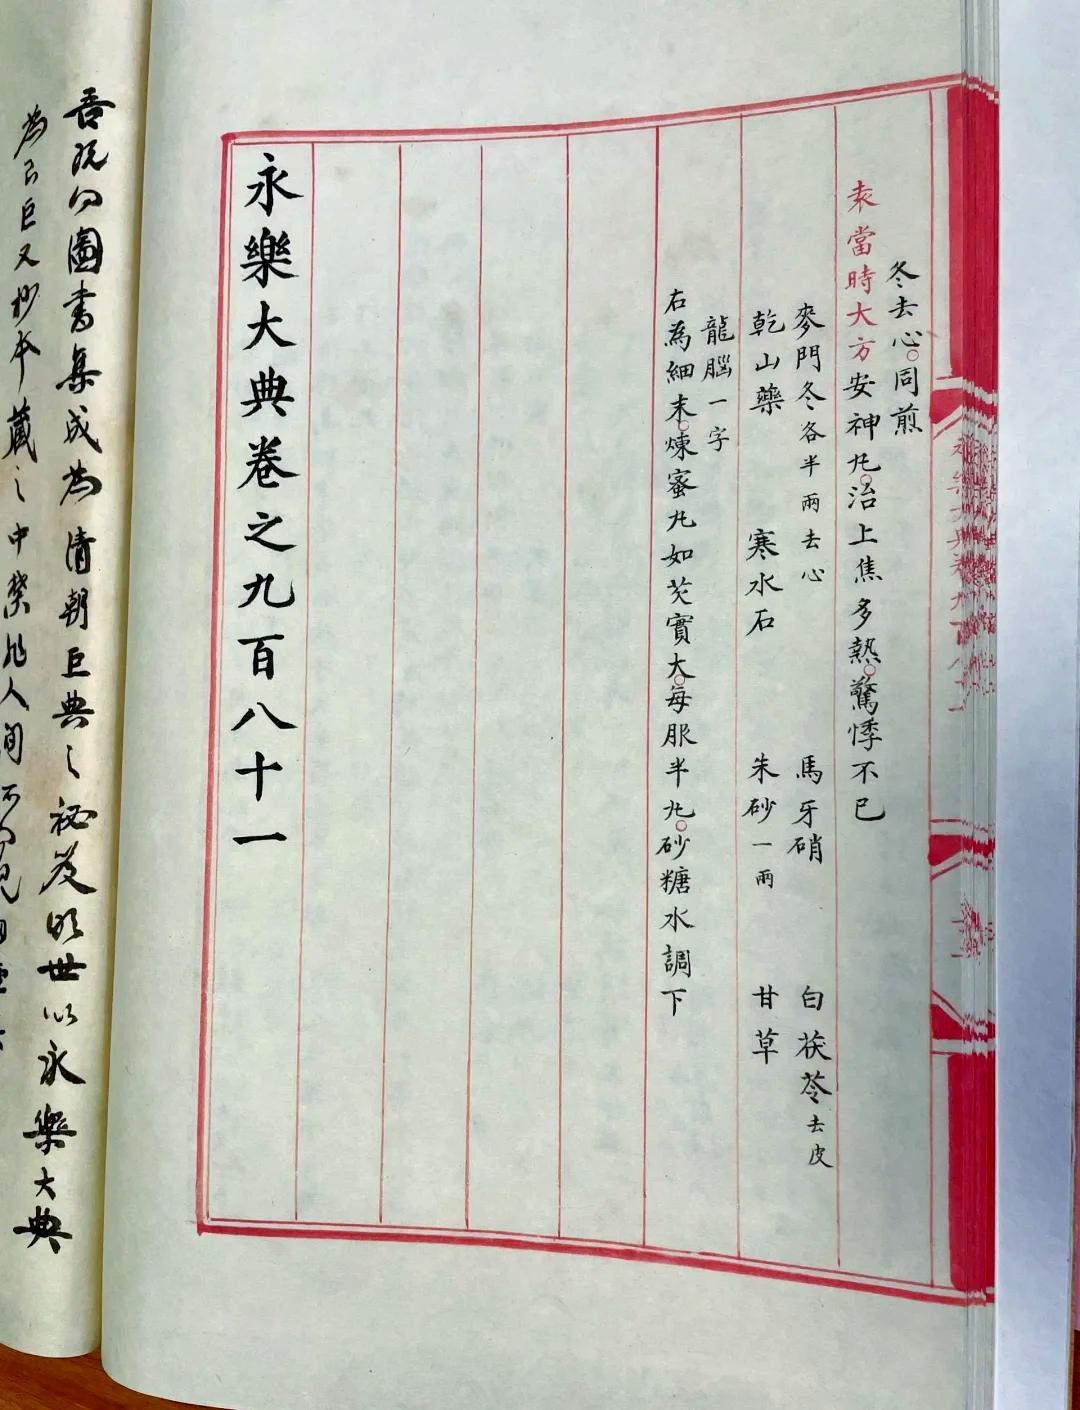 冬去心同煎
袁當時大方安神丸治上焦多熱驚悸不已
麥門冬各半兩去心 馬牙硝 白茯苓去皮
乾山藥 寒水石 朱砂一兩 甘草
龍腦一字
右為細末煉蜜丸如芡實大每服半丸砂糖水調下
永樂大典卷之九百八十一
吾 圖書集成為清朝巨典之秘笈明世以永樂大典
為 巨 又抄本藏之中禁 人間不